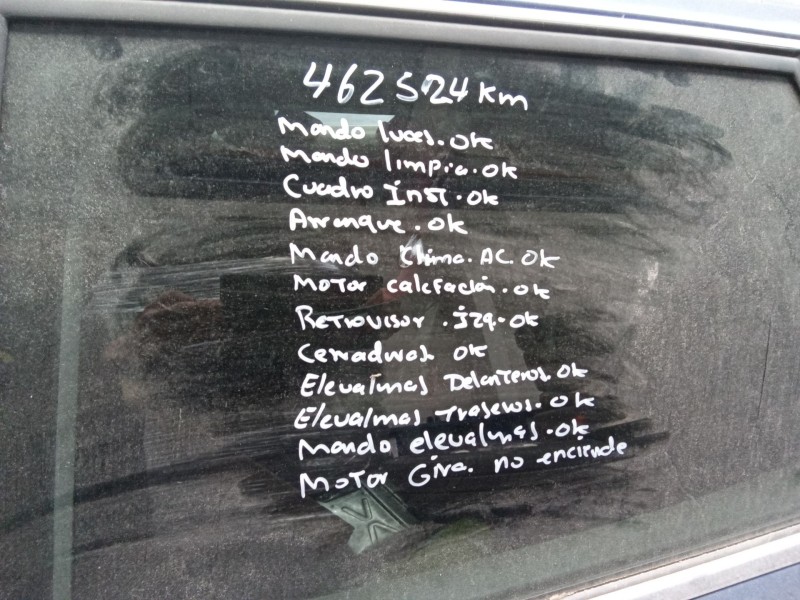 462524 Km
Mando luces. ok
Mando limpia. ok
Cuadro Inst. ok
Arranque. ok
Mando Clima. AC. ok
Motor calefación. ok
Retrovisor. izq. ok
Cerraduras ok
Elevalunas Delanteros. ok
Elevalunas Traseros. ok
Mando elevalunas. ok
Motor Gira. no enciende